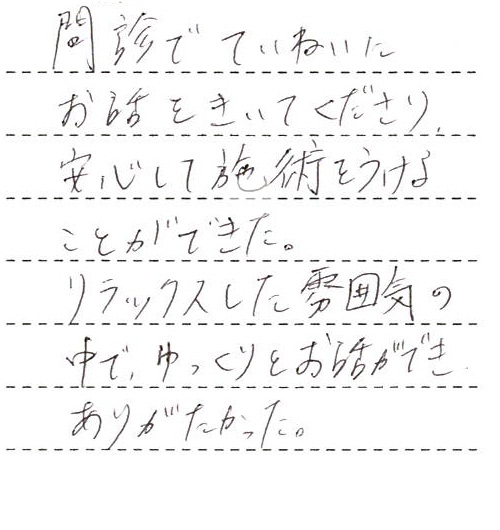 問診でていねいに
お話をきいてくださり、
安心して施術をうける
ことができた。
リラックスした雰囲気の
中で、ゆっくりとお話ができ
ありがたかった。